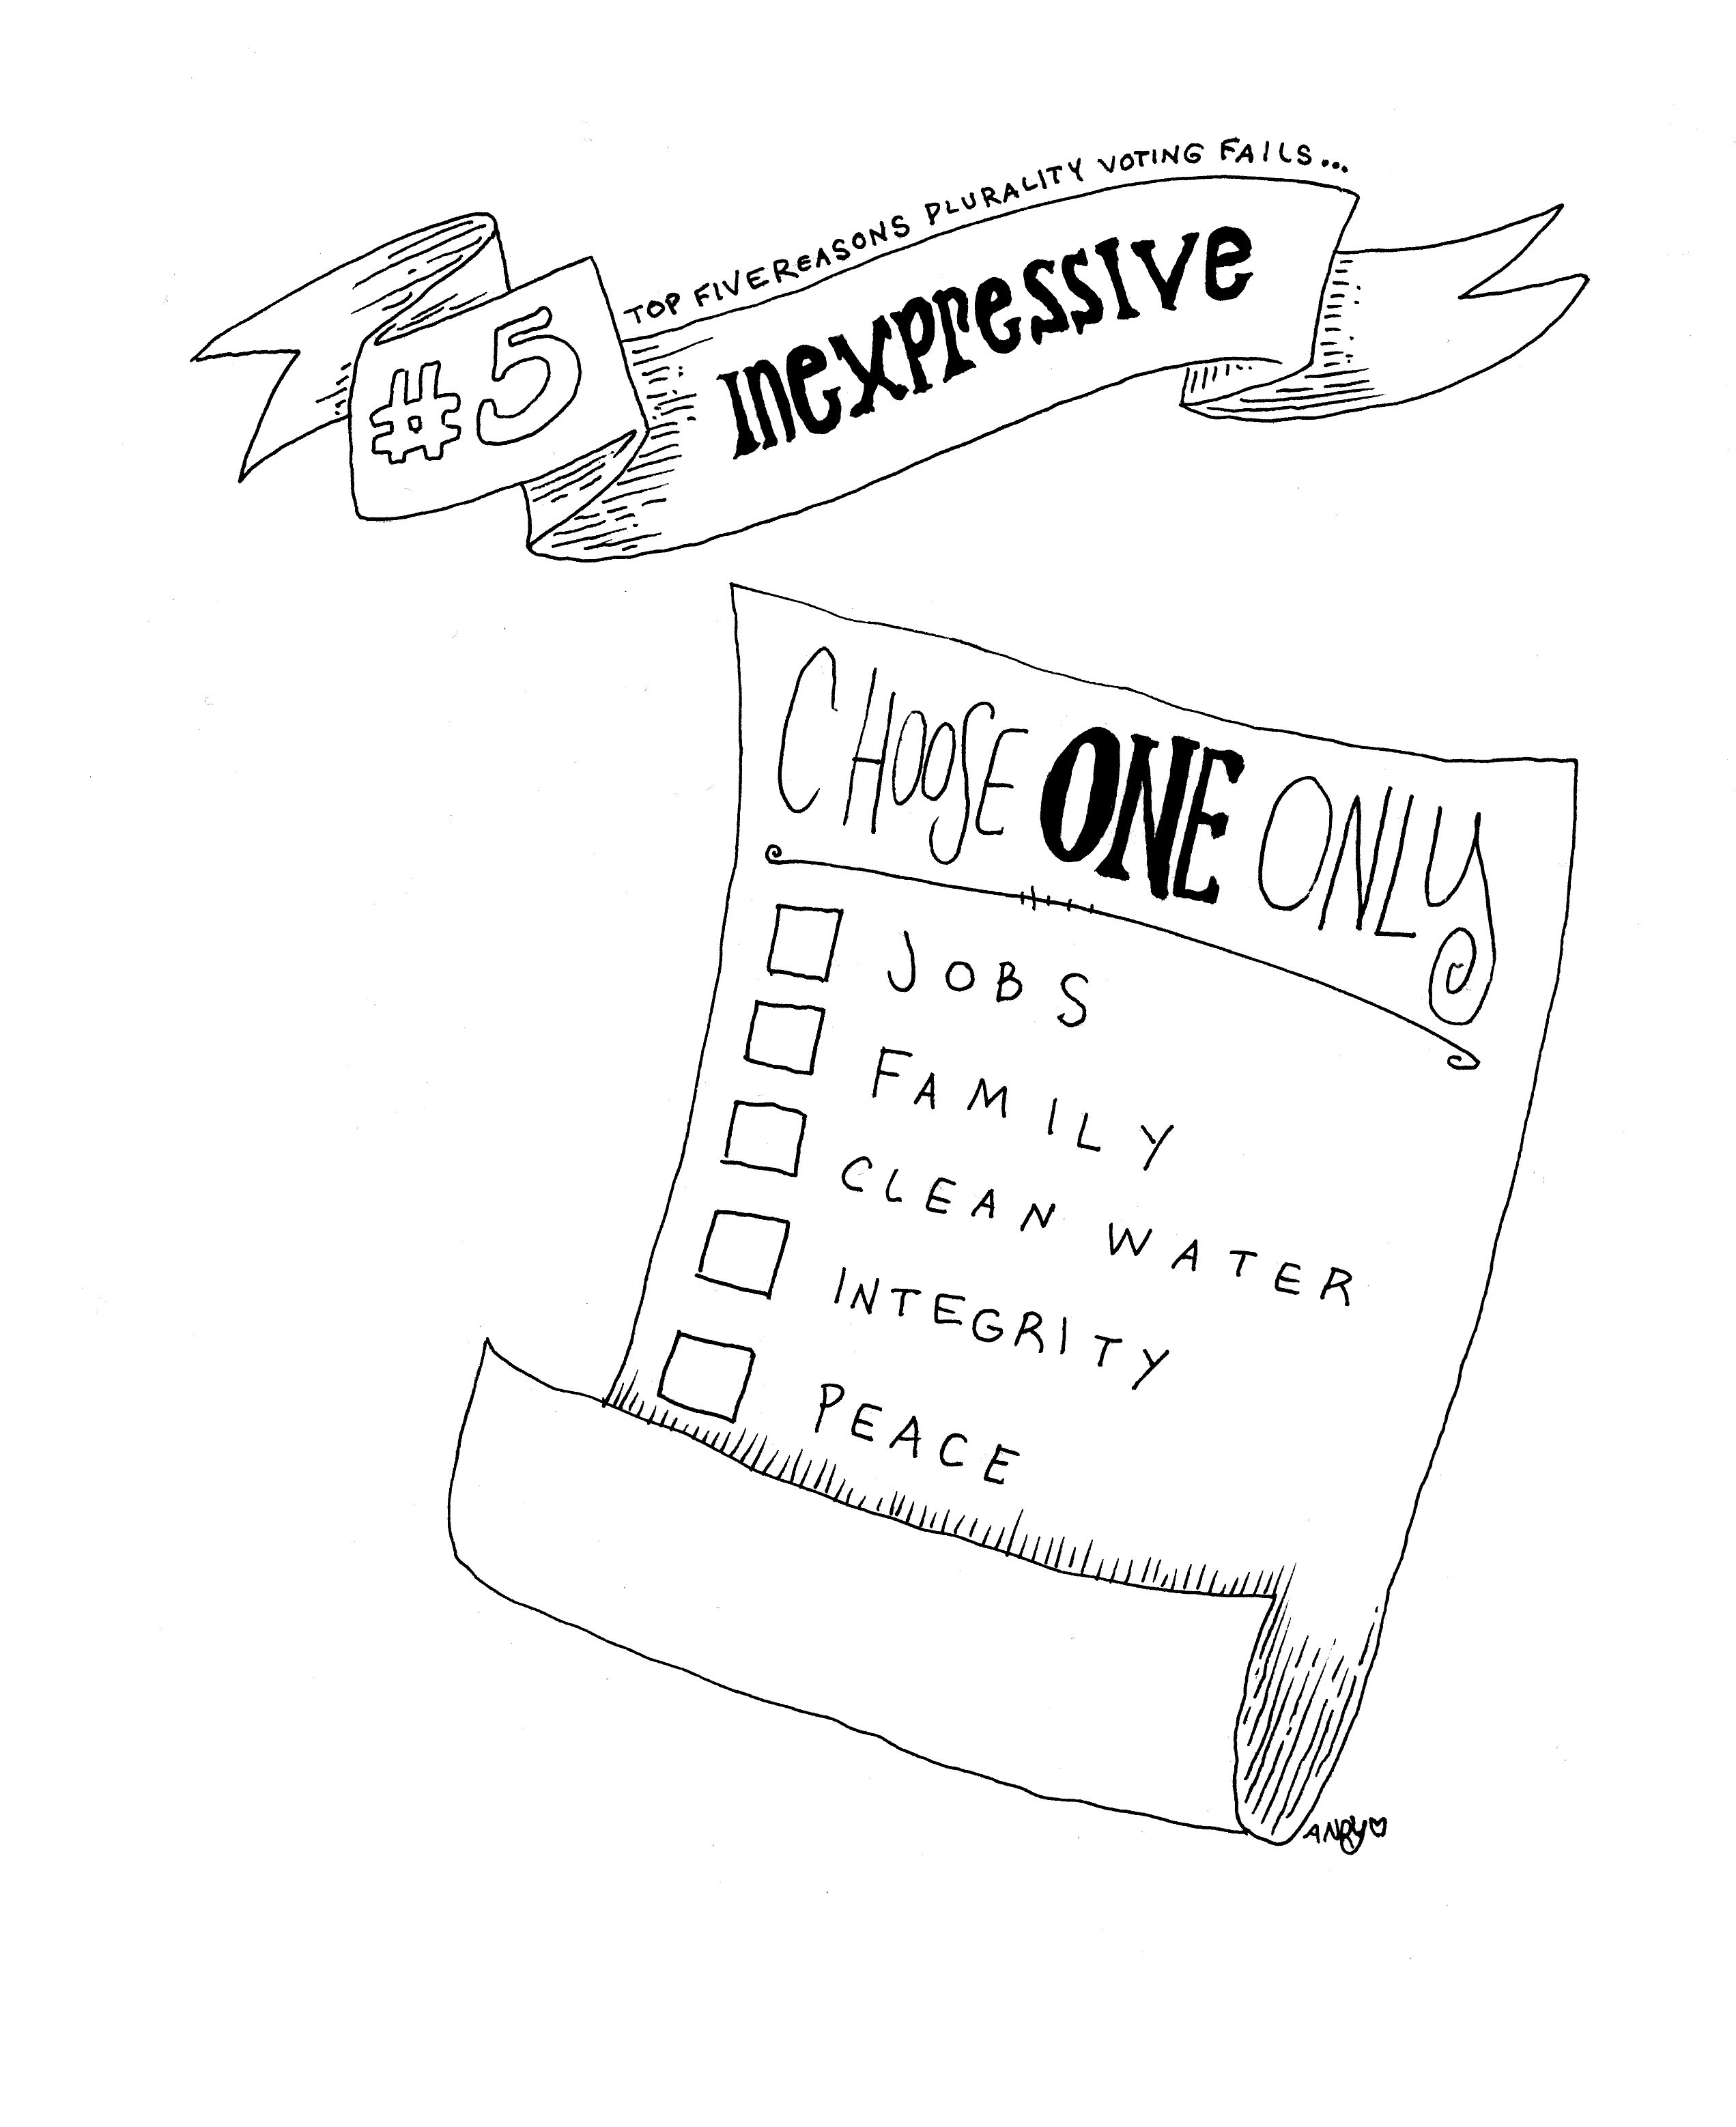 TOP FIVE REASONS PLURALITY VOTING FAILS...
#5
INEXPRESSIVE
CHOOSE ONE ONLY
JOBS
FAMILY
CLEAN WATER
INTEGRITY
PEACE
ANDY